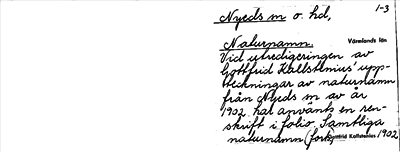 Nyeds sn o. hd, 1-3
Naturnamn. Värmlands län
Vid utredigeringen av
Gottfrid Kallstenius' upp-
teckningar av naturnamn
från Nyeds sn av år
1902 har använts en ren-
skrift i folio. Samtliga
naturnamn (forts.) Gottfrid Kallstenius 1902